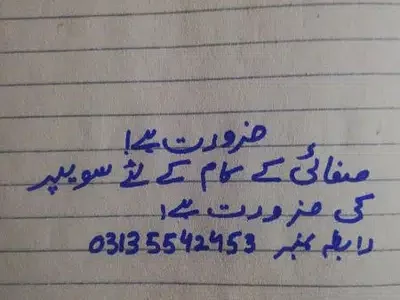 ضرورت ہے!
صفائی کے کام کے لئے سویپر
کی ضرورت ہے!
رابطہ نمبر 03135542453